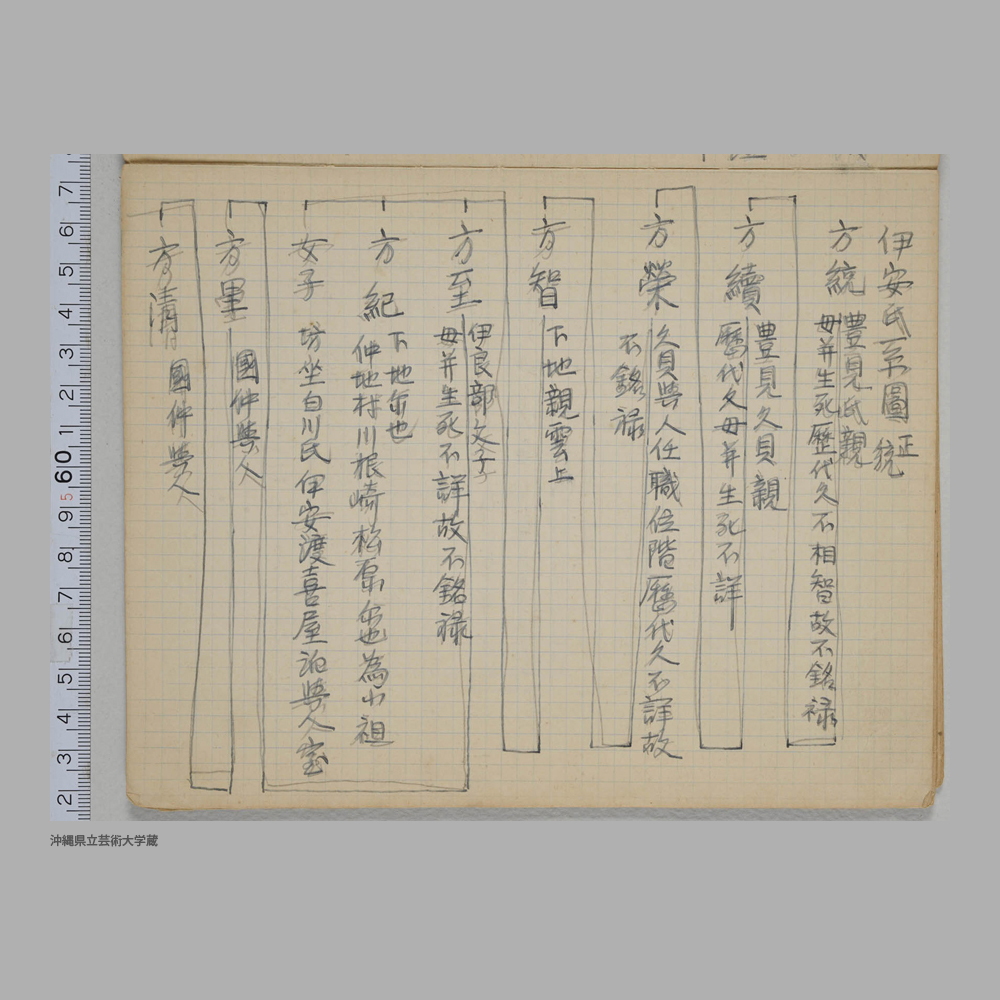 伊安氏系圖 正統
方統 豊見氏親
母并生死歴代久不相智故不銘禄
方續 豊見久貝親
暦代久母并生死不詳
方榮 久貝與人任職位階暦代久不詳故
不銘禄
方智 下地親雲上
方至 伊良部文子
母并生死不詳故不銘禄
方紀 下地
仲地村川根崎松原 為小祖
女子 坊坐白川氏伊安渡喜屋泊與人室
方里 國仲與人
方清 國仲與人
7 6 5 4 3 2 1 60 9 8 7 6 5 4 3 2
5
沖縄県立芸術大学蔵